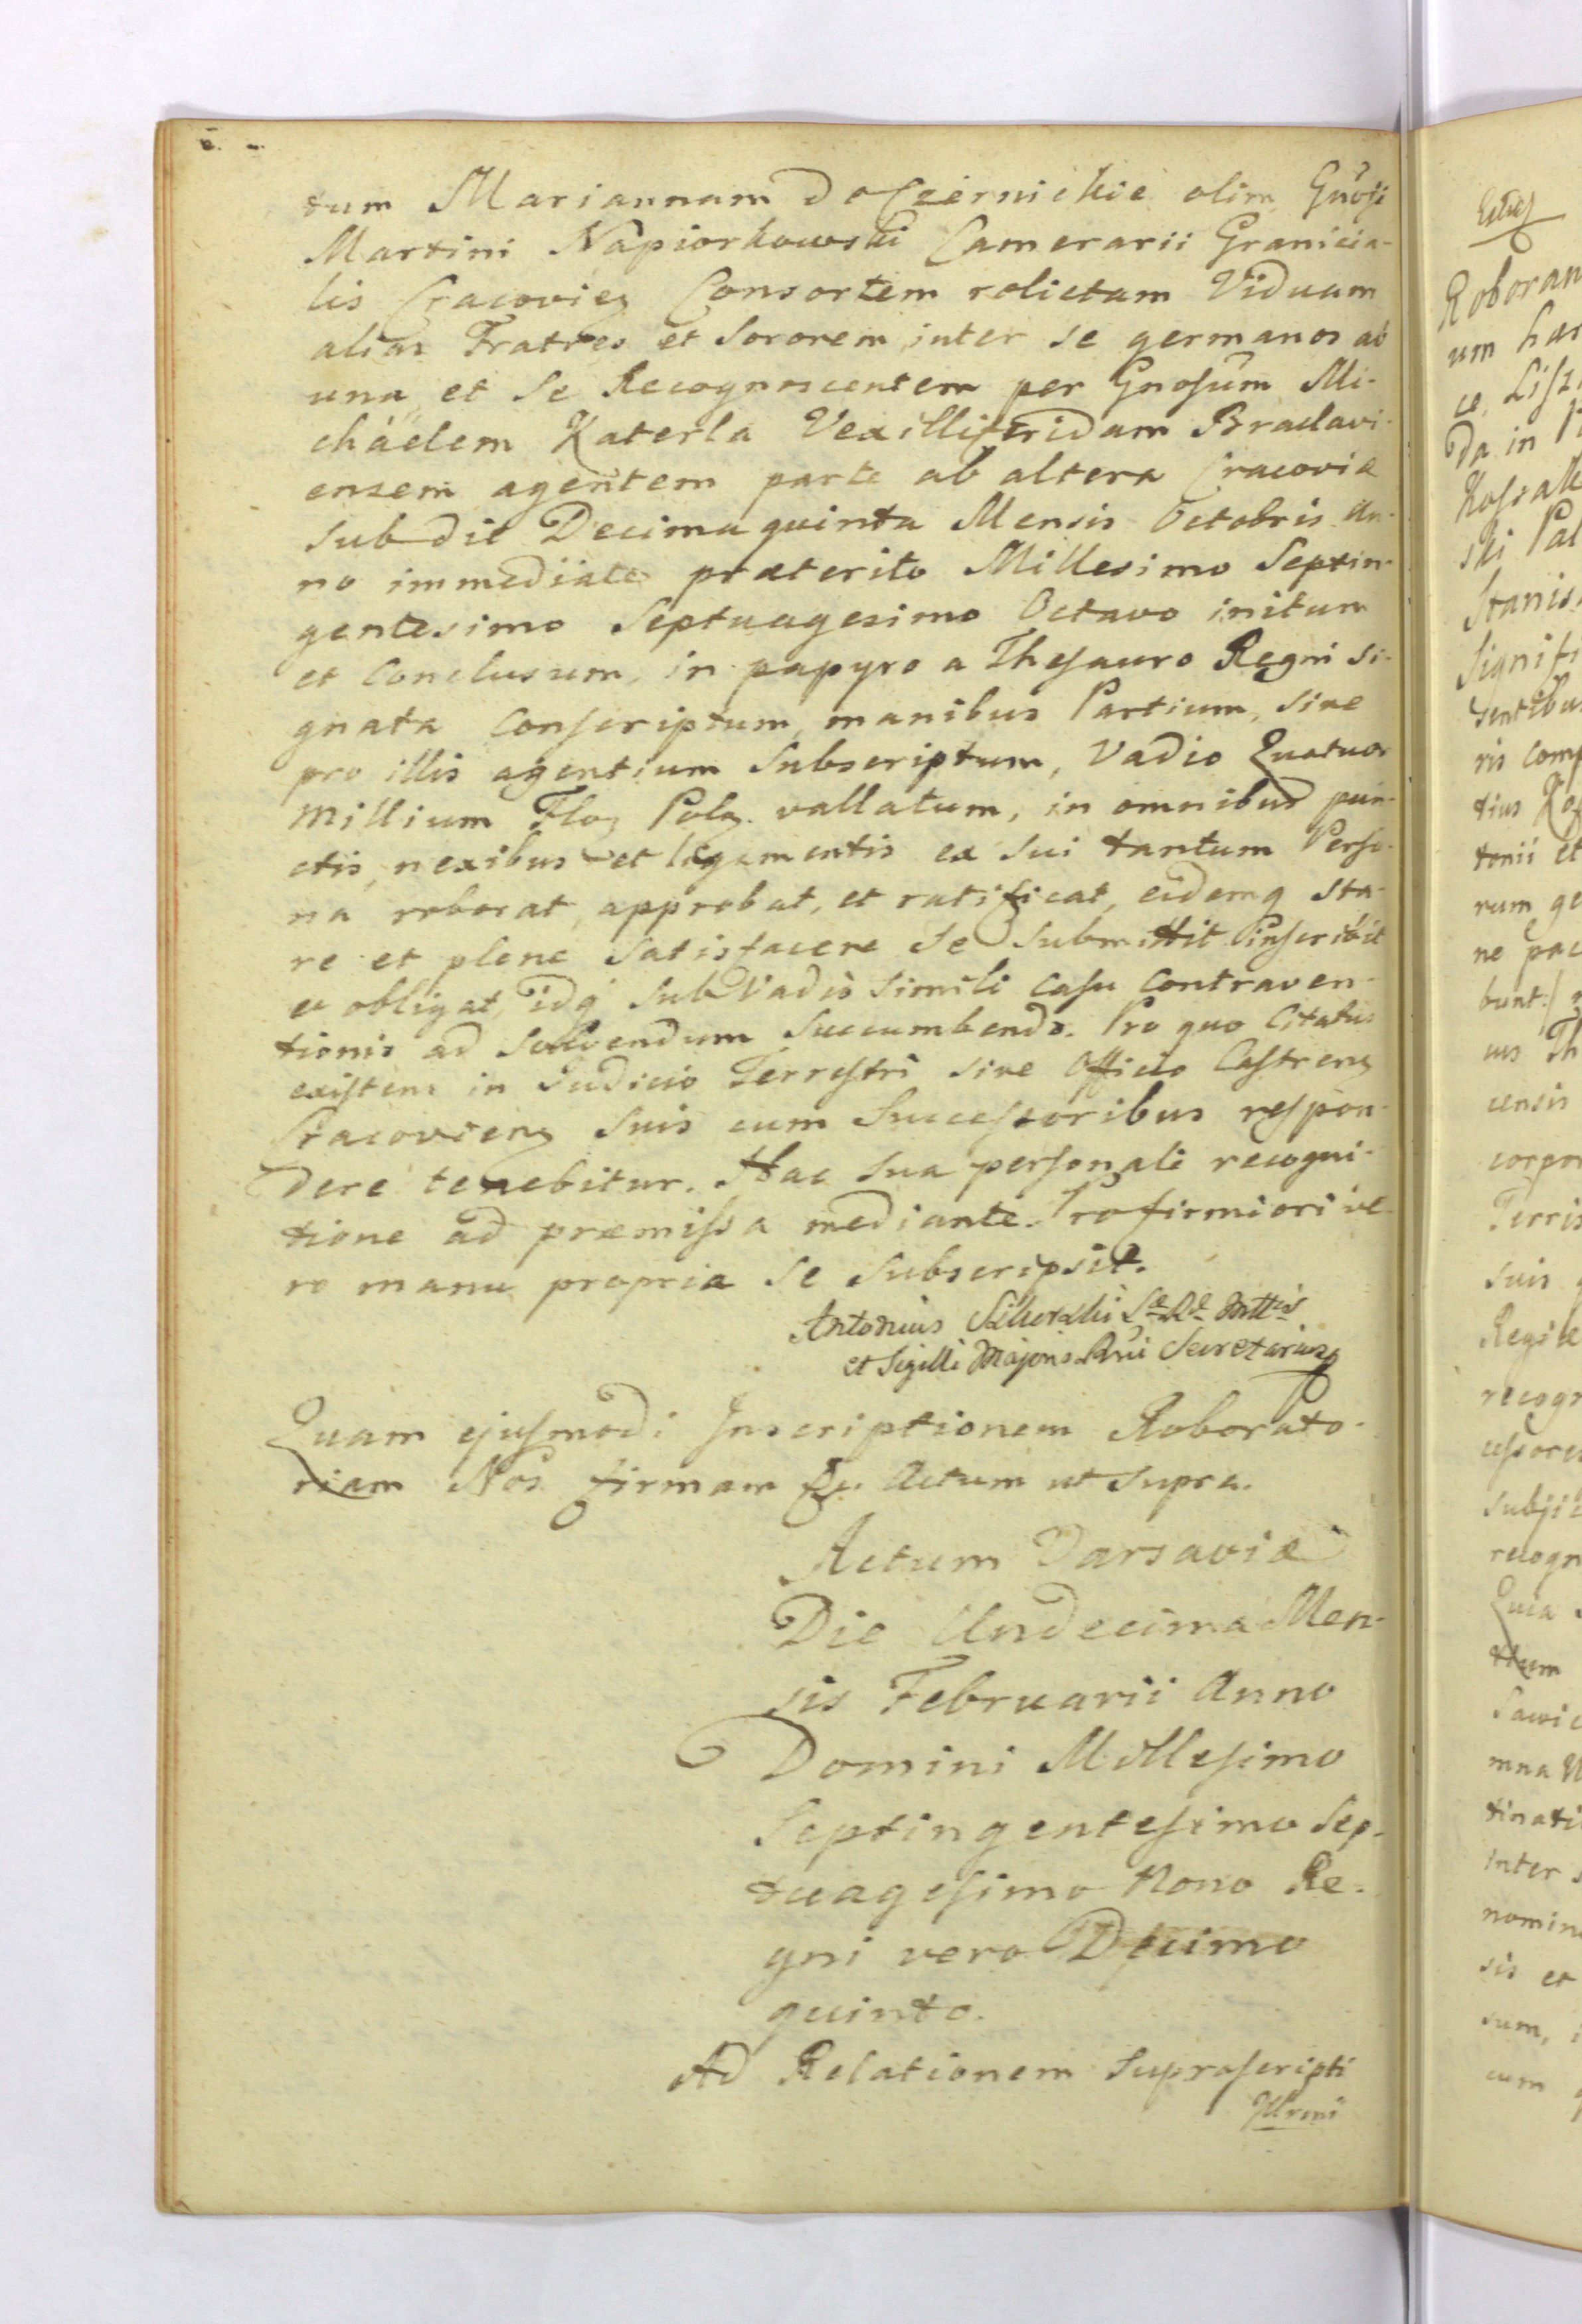 tum Mariannam de Czernickie olim Gnosi
Martini Napiorkowski Camerarii Granicia-
lis Cracovien Consortem relictam Viduam
alias Fratres et Sororem inter se germanos ab
una, et se Recognoscentem per Gnosum Mi-
chaelem Katerla Vexilliferidam Braclavi-
ensem agentem parte ab altera Cracoviæ
sub die Decima quinta Mensis Octobris An-
no immediate præterito Millesimo Septin-
gentesimo Septuagesimo Octavo initum
et Conclusum, in papyro a Thesauro Regni si-
gnata Conscriptum, manibus Partium, sive
pro illis agentium Subscriptum, Vadio Quatuor
Millium Flor Pol. vallatum, in omnibus pun-
ctis, nexibus et ligamentis ex sui tantum Perso-
na roborat, approbat, et ratificat, eidemq sta-
re et plene satisfacere se submittit inscribit
et obligat, idq sub Vadio simili casu contraven-
tionis ad solvendum succumbendo. Pro quo Citatus
existens in Judicio Terrestri sive Officio Castren
Cracovien suis cum Successoribus respon-
dere tenebitur. Hac sua personali recogni-
tione ad præmissa mediante. Pro firmiori ve-
ro manu propria se Subscripsit.
Antonius
et Sigilli Majoris Rni Secretarius
Quam ejusmodi Inscriptionem Roborato-
riam Nos firmam Actum ut supra.
Actum Varsaviæ
Die Undecima Men-
sis Februarii Anno
Domini Millesimo
Septingentesimo Sep-
tuagesimo Nono Re-
gni vero Decimo
quinto.
Ad Relationem suprascripti
Roboran
um
da in
Stanis
Signifi
ris comp
tonii et
rum ge
ne pac
bunt:/
censis
corpor
Terris
suis
recogn
cessores
subjic
recogn
Quia
inter
nomin
sis et
sum,
cum